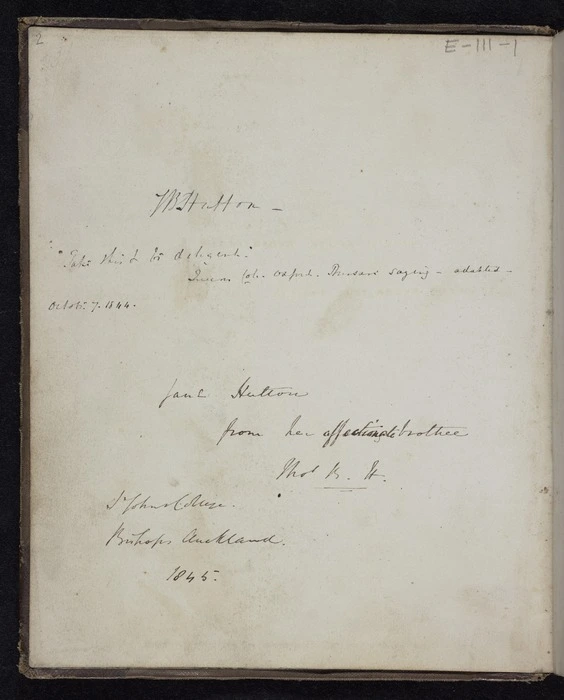 2
E-III-1
TB Hutton -
"Take this & be deligent."
Queens Col. Oxford. Bursars saying - adapted -
Octobr. 7. 1844.
Jane Hutton
from her affectionate brother
Thos B. H.
St Johns College.
Bishops Auckland.
1845.